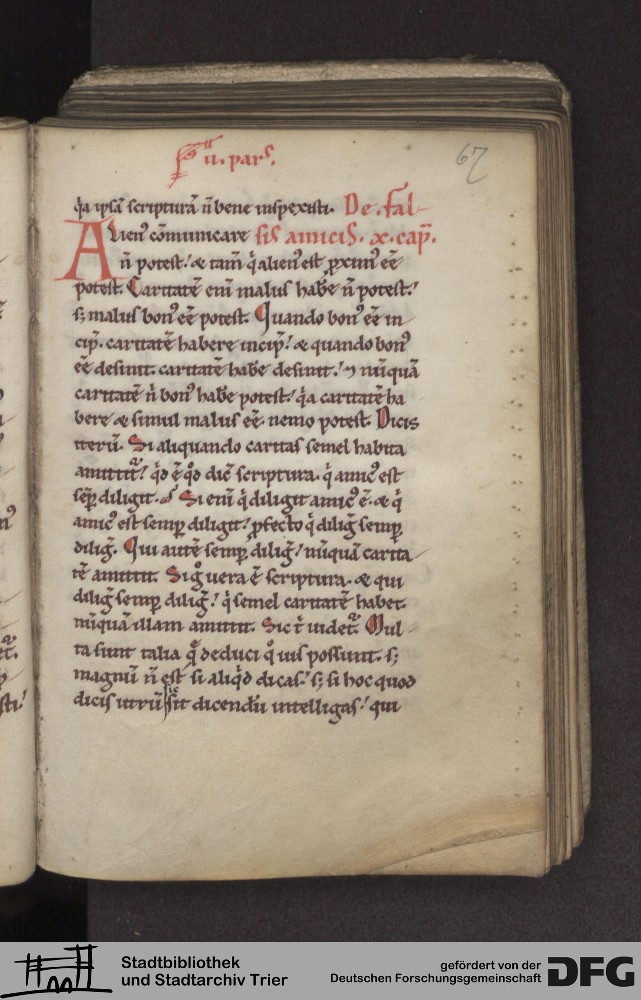 ii. pars.
67
q̇a ipsā scripturā n̄ bene inspexisti. De. fal-
Alien⁹ cōmunicare sis amicis. x. cap̄.
n̄ potest.' & tam̄ q̇ alien⁹ est p̱xim⁹ eē
potest. Caritatē eni malus hab̄e n̄ potest.'
s; malus bon⁹ eē potest. Quando bon⁹ eē in
cip̄. caritatē habere incip̄.' & quando bon⁹
eē desinit. caritatē hab̄e desinit.' ⁊ nūquā
caritatē n̄ bon⁹ hab̄e potest.' q̇a caritatē ha
bere & simul malus eē. nemo potest. Dicis
iterū. Si aliquando caritas semel habita
amittit᷑.' q̇d ē qd̄ dic̄ scriptura. q̇ amic⁹ est
sēp̱ diligit. Si eni q̇ diligit amic⁹ ē. & q̇
amic⁹ est semp̱ diligit.' p̱fecto q̇ diliḡ semp̱
diliḡ. Qui autē semp̱ diliḡ.' nūquā carita-
tē amittit. Si g̊ uera ē scriptura. & qui
diliḡ semp̱ diliḡ.' q̇ semel caritatē habet.
nūquā illam amittit. Sic t̄ uidet᷑. Mul-
ta sunt talia q̄ deduci q̊ uis possunt. s;
magnū n̄ est si aliq̇d dicas.' s; si hoc quod
dicis utrū sic sit dicendū intelligas.' qui
Stadtbibliothek
und Stadtarchiv Trier
gefördert von der
Deutschen Forschungsgemeinschaft
DFG